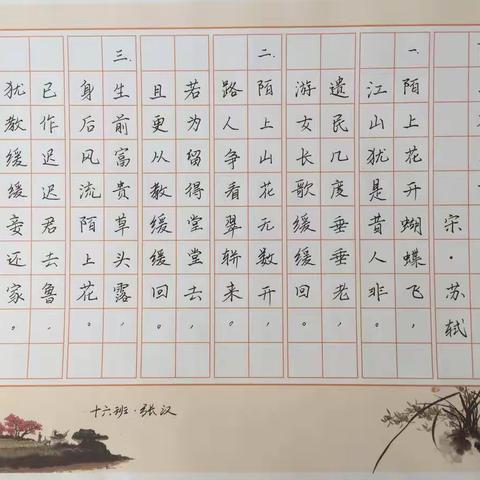 宋·苏轼
一.陌上花开蝴蝶飞，
江山犹是昔人非。
遗民几度垂垂老，
游女长歌缓缓回。
二.陌上山花无数开，
路人争看翠𫐌来。
若为留得堂堂去，
且更从教缓缓回。
三.生前富贵草头露，
身后风流陌上花。
已作迟迟君去鲁，
犹教缓缓妾还家。
十六班·张汉